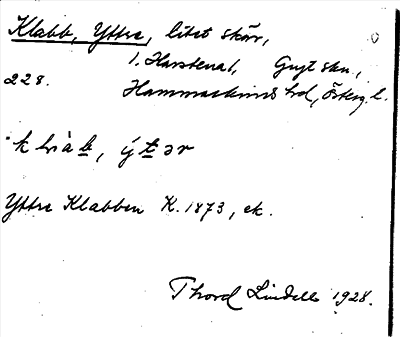 Klabb, Yttre, litet skär,
i Harstena 1, Gryt skn,
228. Hammarkinds hd, Österg. l.
Yttre Klabben K. 1873, ek.
Thord Lindell 1928.